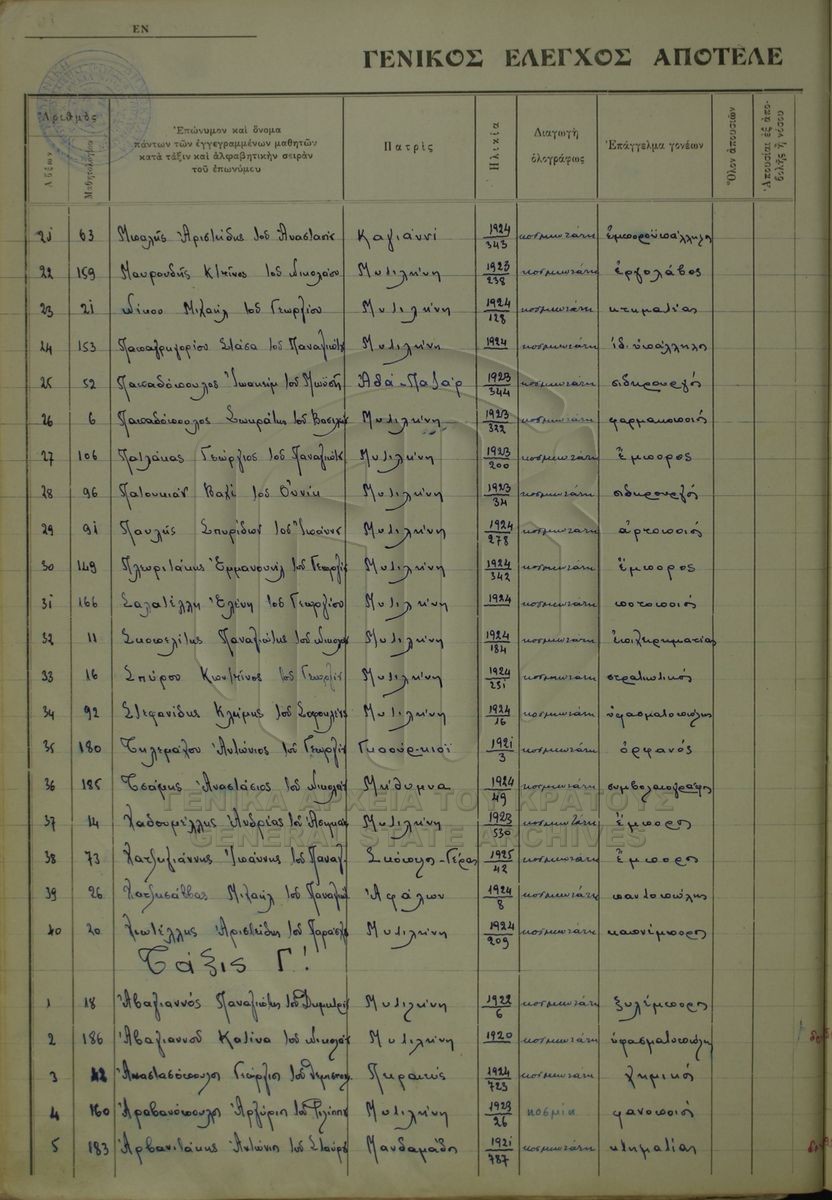 ΕΝ
ΓΕΝΙΚΟΣ ΕΛΕΓΧΟΣ ΑΠΟΤΕΛΕ
Ἀριθμὸς
Αὔξων
Μαθητολογίου
Ἐπώνυμον καὶ ὄνομα
πάντων τῶν ἐγγεγραμμένων μαθητῶν
κατὰ τάξιν καὶ ἀλφαβητικὴν σειρὰν
τοῦ ἐπωνύμου
Πατρὶς
Ἡλικία
Διαγωγὴ
ὁλογράφως
Ἐπάγγελμα γονέων
Ὅλον ἀπουσιῶν
Ἀπουσίαι ἐξ ἀπο-
βολῆς ἢ νόσου
21 63 Μπαλῆς Ἀριστείδης τοῦ Ἀναστασίου Καγιάννι 1924/343 κοσμιωτάτη ἐμποροϋπάλληλος
22 159 Μαυρουδῆς Κ/τῖνος τοῦ Νικολάου Μυτιλήνη 1923/238 κοσμιωτάτη ἐργολάβος
23 21 Νίκου Μιχαὴλ τοῦ Γεωργίου Μυτιλήνη 1924/128 κοσμιωτάτη κτηματίας
24 153 Παπαγρηγορίου Στάσα τοῦ Παναγιώτου Μυτιλήνη 1924 κοσμιωτάτη ἰδ. ὑπάλληλος
25 52 Παπαδόπουλος Ἰωακεὶμ τοῦ Μωϋσῆ Ἀδὰ-Παζὰρ 1923/344 κοσμιωτάτη σιδηρουργός
26 6 Παπαδόπουλος Σωκράτης τοῦ Βασιλείου Μυτιλήνη 1923/322 κοσμιωτάτη φαρμακοποιός
27 106 Πατλάκας Γεώργιος τοῦ Παναγιώτου Μυτιλήνη 1923/200 κοσμιωτάτη ἔμπορος
28 96 Μυτιλήνη 1923/34 κοσμιωτάτη σιδηρουργός
29 91 Παυλῆς Σπυρίδων τοῦ Ἰωάννου Μυτιλήνη 1924/278 κοσμιωτάτη ἀρτοποιός
30 149 Πλωριτάκης Ἐμμανουὴλ τοῦ Γεωργίου Μυτιλήνη 1924/342 κοσμιωτάτη ἔμπορος
31 166 Σαλατέλλη Ἑλένη τοῦ Γεωργίου Μυτιλήνη 1924 κοσμιωτάτη ποτοποιός
32 11 Σκοπελίτης Παναγιώτης τοῦ Νικολάου Μυτιλήνη 1924/184 κοσμιωτάτη ἐπιχειρηματίας
33 16 Σπύρου Κων/τῖνος τοῦ Γεωργίου Μυτιλήνη 1924/251 κοσμιωτάτη στρατιωτικός
34 92 Στεφανίδης Κλεομένης τοῦ Σοφοκλέους Μυτιλήνη 1924/16 κοσμιωτάτη ὑφασματοπώλης
35 180 Τηλεμάχου Ἀντώνιος τοῦ Γεωργίου 1921/3 κοσμιωτάτη ὀρφανός
36 185 Τσάμης Ἀναστάσιος τοῦ Νικολάου Μήθυμνα 1924/49 κοσμιωτάτη συμβολαιογράφος
37 14 Ἀνδρέας τοῦ Μυτιλήνη 1923/530 κοσμιωτάτη ἔμπορος
38 73 Χατζηγιάννης Ἰωάννης τοῦ Παναγ. Σκόπελος-Γέρας 1925/42 κοσμιωτάτη ἔμπορος
39 26 Χατζησάββας Μιχαὴλ τοῦ Παναγιώτου Ἀφάλων 1924/8 κοσμιωτάτη παντοπώλης
40 20 Χιωτέλλης Ἀριστείδης τοῦ Παρασκευᾶ Μυτιλήνη 1924/209 κοσμιωτάτη καπνέμπορος
Τάξις Γ΄
1 18 Ἀβαγιαννός Παναγιώτης τοῦ Δημητρίου Μυτιλήνη 1922/6 κοσμιωτάτη ξυλέμπορος
2 186 Ἀβαγιαννοῦ Κατίνα τοῦ Νικολάου Μυτιλήνη 1920 κοσμιωτάτη ὑφασματοπώλης
3 12 Ἀναστασόπουλος Γεώργιος τοῦ Πειραιεύς 1924/723 κοσμιωτάτη χημικός
4 160 Ἀραβανόπουλος Ἀργύριος τοῦ Φιλίππου Μυτιλήνη 1923/26 κοσμία φανοποιός
5 183 Ἀρβανιτάκης Ἀντώνιος τοῦ Σταύρου Μανδαμάδος 1921/787 κοσμιωτάτη κτηματίας
ΓΕΝΙΚΑ ΑΡΧΕΙΑ ΤΟΥ ΚΡΑΤΟΥΣ
GENERAL STATE ARCHIVES